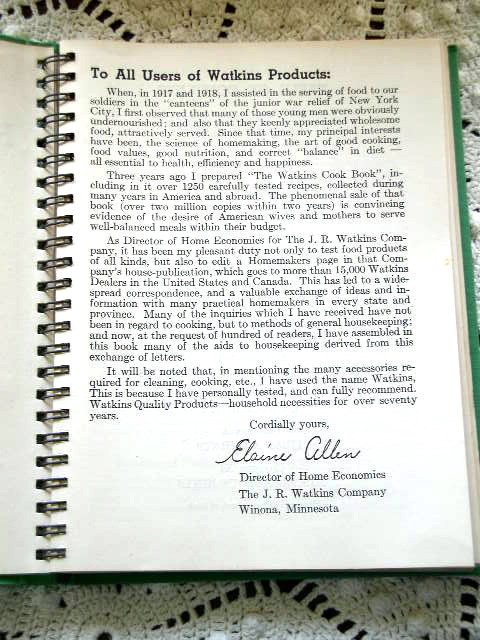 To All Users of Watkins Products:
When, in 1917 and 1918, I assisted in the serving of food to our
soldiers in the "canteens" of the junior war relief of New York
City, I first observed that many of those young men were obviously
undernourished; and also that they keenly appreciated wholesome
food, attractively served. Since that time, my principal interests
have been, the science of homemaking, the art of good cooking,
food values, good nutrition, and correct "balance" in diet —
all essential to health, efficiency and happiness.
Three years ago I prepared "The Watkins Cook Book", in-
cluding in it over 1250 carefully tested recipes, collected during
many years in America and abroad. The phenomenal sale of that
book (over two million copies within two years) is convincing
evidence of the desire of American wives and mothers to serve
well-balanced meals within their budget.
As Director of Home Economics for The J. R. Watkins Com-
pany, it has been my pleasant duty not only to test food products
of all kinds, but also to edit a Homemakers page in that Com-
pany's house-publication, which goes to more than 15,000 Watkins
Dealers in the United States and Canada. This has led to a wide-
spread correspondence, and a valuable exchange of ideas and in-
formation with many practical homemakers in every state and
province. Many of the inquiries which I have received have not
been in regard to cooking, but to methods of general housekeeping;
and now, at the request of hundred of readers, I have assembled in
this book many of the aids to housekeeping derived from this
exchange of letters.
It will be noted that, in mentioning the many accessories re-
quired for cleaning, cooking, etc., I have used the name Watkins,
This is because I have personally tested, and can fully recommend.
Watkins Quality Products—household necessities for over seventy
years.
Cordially yours,
Elaine Allen
Director of Home Economics
The J. R. Watkins Company
Winona, Minnesota